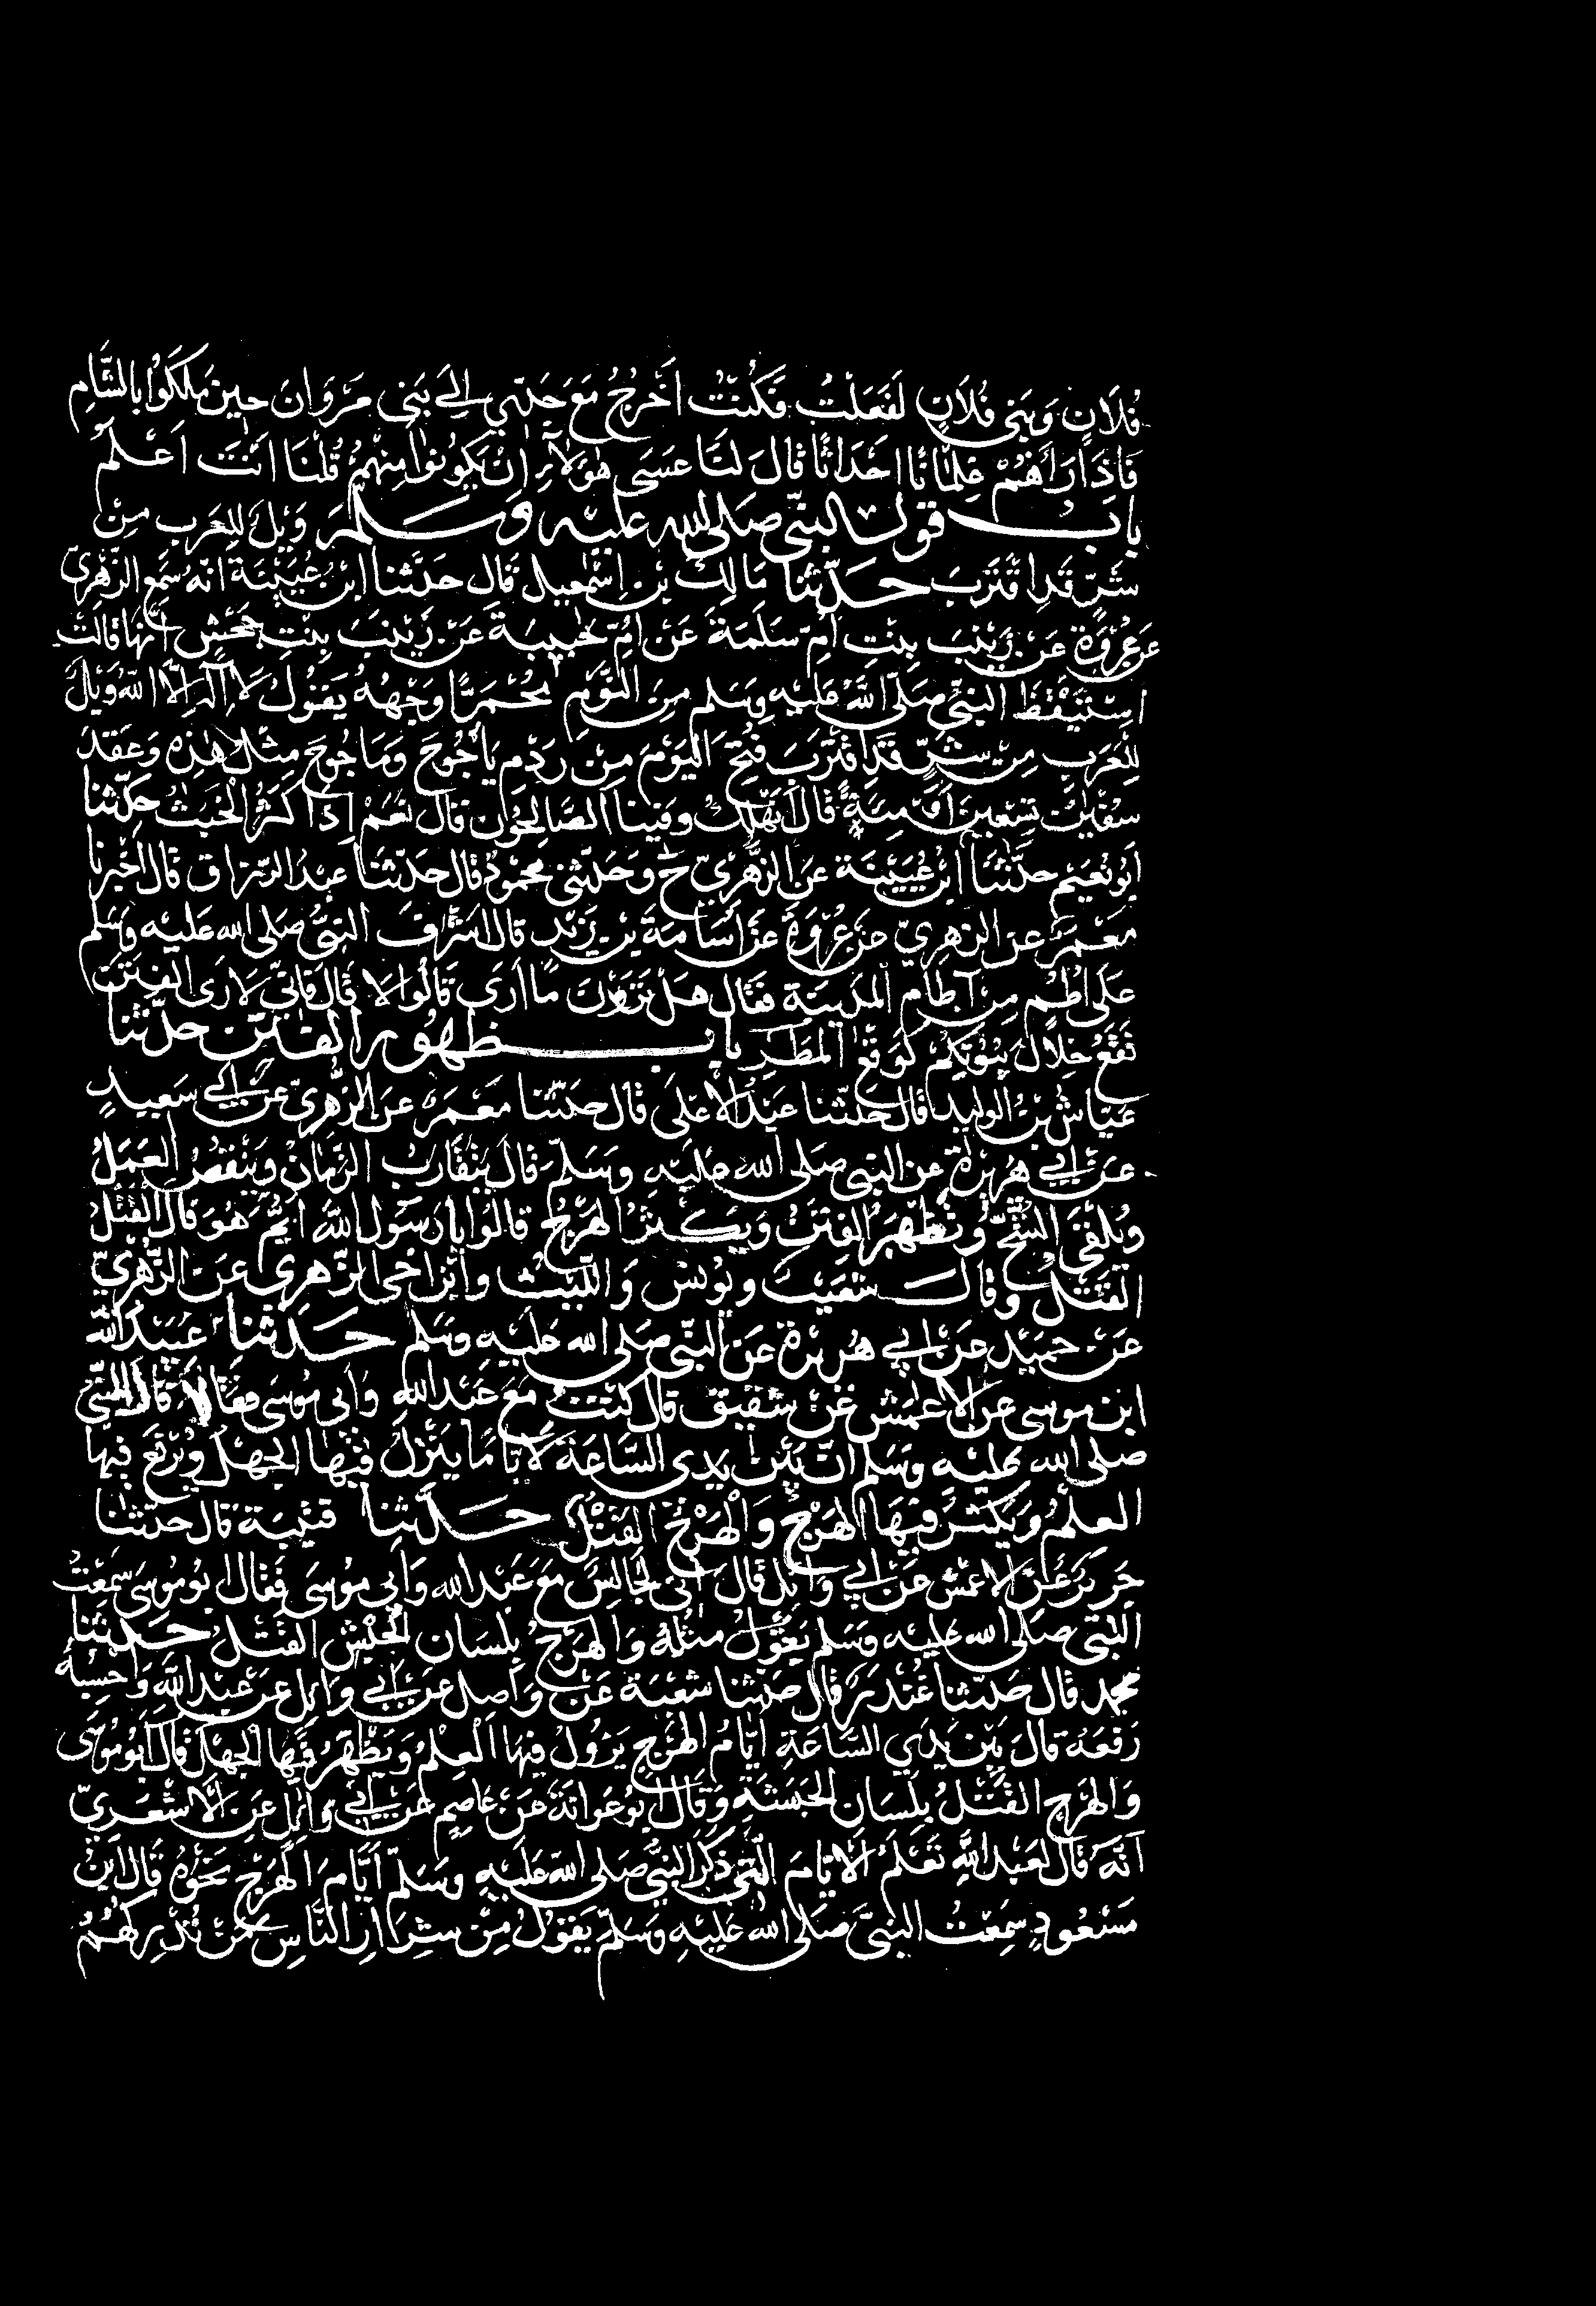 فُلَانٍ وَبَنِي فُلَانٍ لَفَعَلْتُ فَكُنْتُ أَخْرُجُ مَعَ جَدّي إلى بَنِي مَرْوَانَ حِينَ مَلَكُوا بِالشَّامِ
فَاذَا رَاَهُمْ غِلْمَانًا اَحْدَاثًا قَالَ لَنَا عَسَى هَؤلاءِ اَنْ يَكُونُوا مِنْهُمْ قُلْنَا اَنْتَ اَعْلَمُ
باب قول النبيّ صَلى الله عليْه وَسَلمَ وَيْلٌ لِلْعَرَبِ مِنْ
شَرٍّ قَدِ اقْتَرَبَ حدّثنا مَالِكُ بن اِسْمٰعيل قَال حَدّثنا ابْنُ عُيَيْنَةَ انّهُ سَمِعَ الزّهْريّ
عَن عُرْوَةَ عَنْ زَيْنَبَ بِنْتِ اُمِّ سَلَمَةَ عَنْ اُمِّ حَبِيبَةَ عَنْ زَيْنَبَ بِنْتِ جَحْشٍ اَنّهَا قَالَتْ
اسْتَيْقَظَ النبيُّ صَلّى اللهُ عَلَيْهِ وَسَلم مِنَ النَّوْمِ مُحْمَرًّا وَجْهُهُ يَقُولُ لَا اِلٰهَ اِلّا اللهُ وَيْلٌ
لِلْعَرَبِ مِنْ شَرٍّ قَدِ اقْتَرَبَ فُتِحَ الْيَوْمَ مِنْ رَدْمِ يَأجُوجَ وَمَاجُوجَ مِثْلُ هٰذِهِ وَعَقَدَ
سُفْيٰنُ تِسْعِينَ اَوْ مِئَةً قَالَ اَنَهْلِكُ وَفِينَا الصَّالِحُونَ قَالَ نَعَمْ اِذَا كَثُرَ الْخَبَثُ حَدّثنا
اَبُو نُعَيْم حدَّثَنَا ابْنُ عُيَيْنَة عَنِ الزُّهْرِيّ ح وَحَدّثني مَحْمُودٌ قَال حَدّثنَا عبدُ الرّزاق قَال اَخْبَرنَا
مَعْمَرٌ عَنِ الزهريّ عَنْ عُرْوَةَ عَنْ اُسَامَةَ بن زَيْد قال اَشْرَفَ النبيُّ صَلى الله عَليْه وسَلم
عَلَى اُطُمٍ مِن آطَامِ الْمَدِينَةِ فَقَال هَلْ تَرَوْنَ مَا اَرَى قَالُوا لا قَال فَانّي لَارَى الْفِتَنَ
تَقَعُ خِلَالَ بُيُوتِكُمْ كَوَقْعِ الْمَطَرِ باب ظهُور الفتن حدّثنا
عَيّاش بنُ الوليد قال حَدّثنا عَبْدُ الاَعْلَى قَال حدّثنا مَعْمَرٌ عَنِ الزُّهْرِيّ عَن سَعِيدٍ
عَن ابي هُرَيْرَةَ عَن النبي صَلى الله عليْه وسَلمَ قَال يَتَقَارَبُ الزَمَانُ وَيَنْقُصُ الْعَمَلُ
وَيُلْقَى الشُّحّ وَتَظْهَرُ الفِتَنُ وَيَكْثُرُ الهَرْجُ قَالُوا يا رَسُول اللهِ اَيّمُ هُوَ قال القَتْلُ
القَتْلُ وقالَ شُعَيْبٌ ويُونُس وَاللَّيْث وابْن اَخي الزّهري عَنِ الزُّهْرِيّ
عَنْ حميْدٍ عَن ابي هُرَيْرَة عَنِ النّبي صَلى الله عَليْه وسَلم حَدّثنا عُبَيْدُ اللهِ
ابن موسى عن الاعْمَش عَنْ شَقِيْقٍ قَال كُنْتُ مَعَ عَبْد الله وَابي موسَى فقَالا قَال النّبي
صَلى الله عَليْه وسَلم انّ بَيْنَ يَدي السَّاعَةِ لَاَيّامًا يَنْزِلُ فِيْهَا الجَهْلُ وَيُرْفَعُ فِيهَا
العلْمُ وَيَكْثُرُ فِيهَا الهَرْجُ وَالْهَرْجُ القَتْلُ حَدّثنا قتيبَة قال حَدّثنا
جَرِيرٌ عَن الاعمش عَنْ ابي وَائل قَال انّي لجَالِسٌ مَعَ عَبْد الله وَابي مُوسَى فَقَال ابُو مُوسَى سَمِعْتُ
النّبي صَلى الله عليه وَسَلم يَقُوْلُ مِثْلَهُ وَالهَرْجُ بِلسَان الحَبَش القَتْلُ حَدّثنا
محمد قَال حَدّثنا غُنْدَرٌ قَال حَدّثنا شُعْبَة عَنْ وَاصِل عَن ابي وَائل عَن عَبْدِ اللهِ وَاَحْسِبُهُ
رَفَعَهُ قَالَ بَيْنَ يَدَيِ السَّاعَةِ ايَّامُ الهَرْجِ يَزُولُ فِيهَا العِلْمُ وَيَظْهَرُ فِيهَا الجَهْلُ قَالَ اَبُو مُوسَى
وَالهَرْج القَتْلُ بِلِسَان الحَبَشَةِ وَقَال ابُو عَوَانَةَ عَنْ عَاصِمٍ عَن ابي وَائل عَن الاَشْعَريّ
اَنّهُ قَالَ لِعَبْد اللهِ تَعْلَمُ الاَيّامَ الّتِي ذَكَرَ النبيُّ صَلى اللهُ عَلَيْهِ وَسَلمَ اَيَّام الهَرْجِ نَحْوَهُ قَال ابْنُ
مَسْعُودٍ سَمِعْتُ النبيَّ صَلى الله عَلَيْهِ وَسَلمَ يَقُوْلُ مِنْ شِرَارِ النَّاسِ مَنْ تُدْرِكُهُمُ